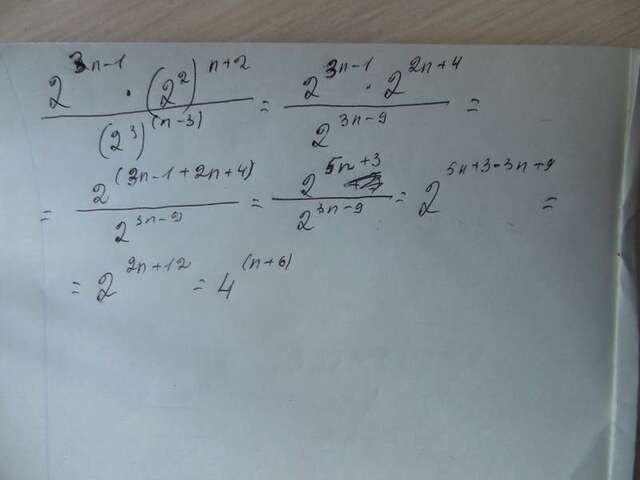 2^{3n-1} · (2^2)^{n+2} / (2^3)^{(n-3)} = 2^{3n-1} · 2^{2n+4} / 2^{3n-9} =
= 2^{(3n-1+2n+4)} / 2^{3n-9} = 2^{5n+3} / 2^{3n-9} = 2^{5n+3-3n+9} =
= 2^{2n+12} = 4^{(n+6)}